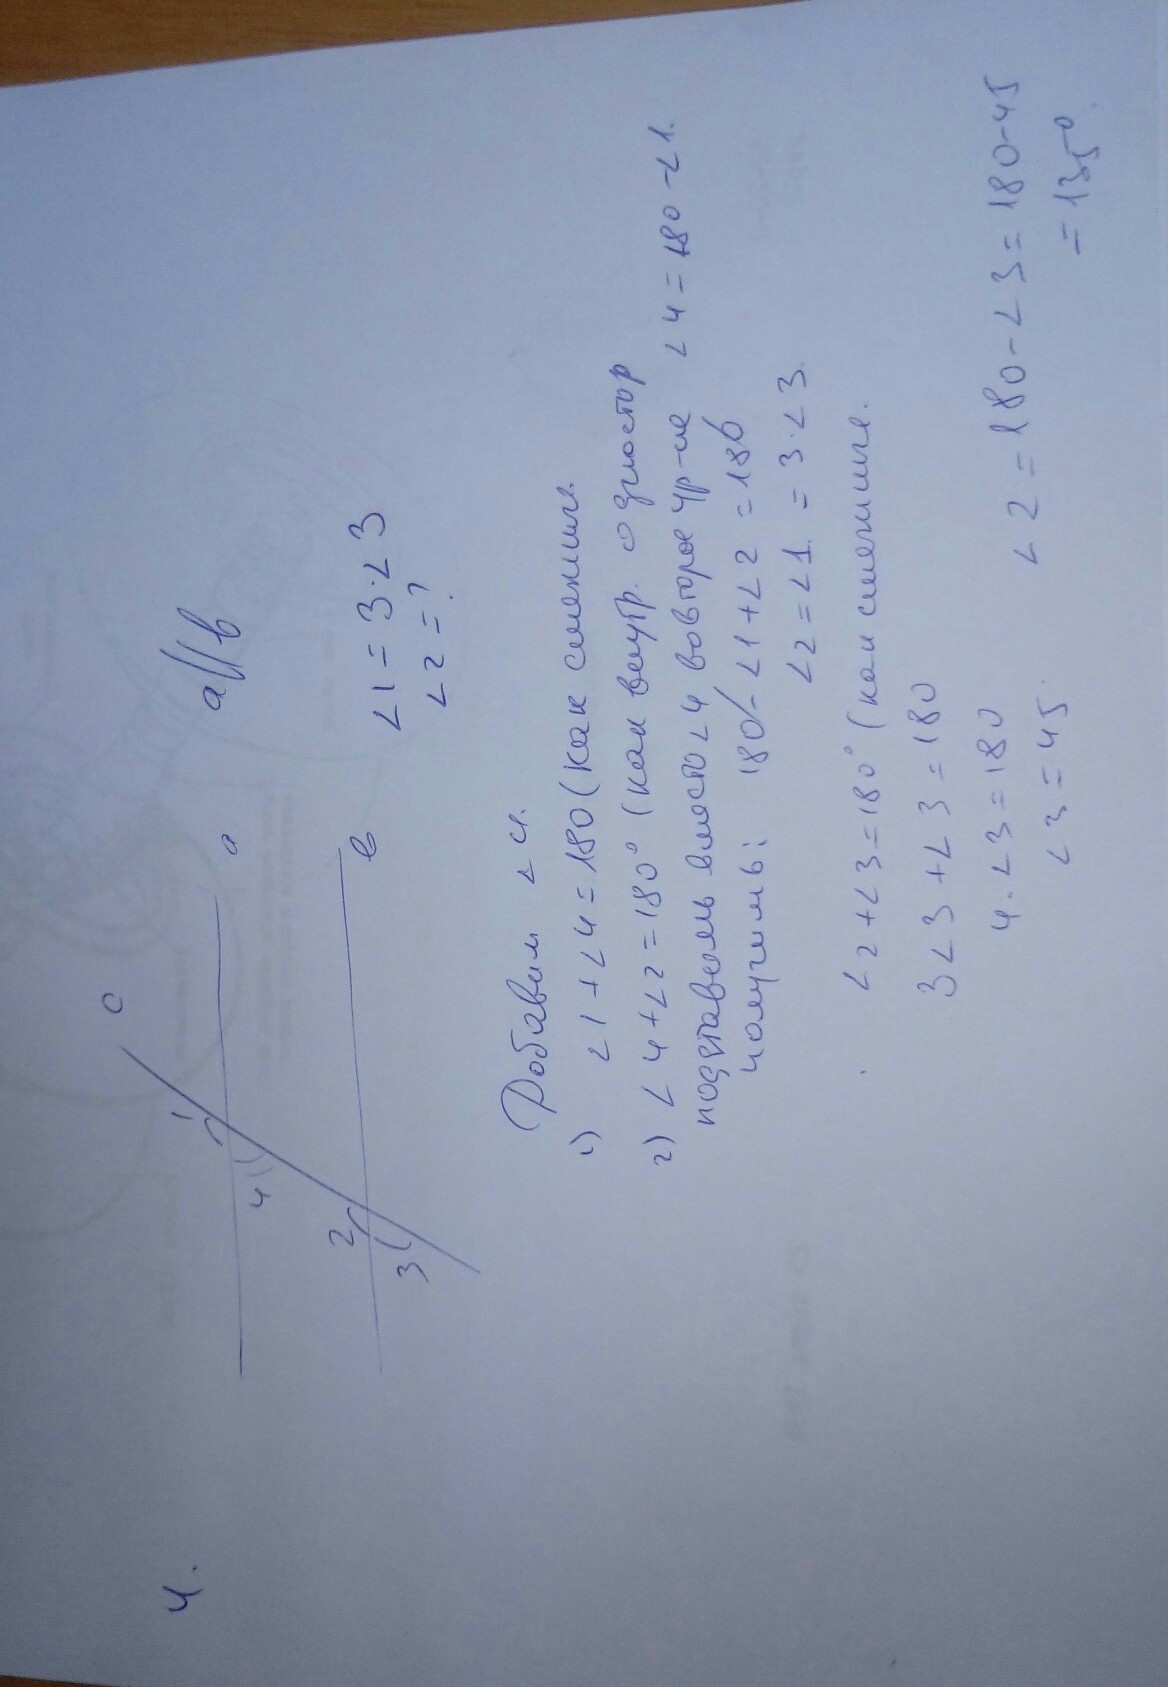 4.
c
a
a||b
1
4
b
2
3
∠1 = 3·∠3
∠2 = ?
Добавим ∠4.
1) ∠1 + ∠4 = 180 (как смежные.
2) ∠4 + ∠2 = 180° (как внутр. одностор
подставляем вместо ∠4 во второе ур-ие ∠4 = 180 - ∠1.
получимь: 180 - ∠1 + ∠2 = 180
∠2 = ∠1. = 3·∠3.
∠2 + ∠3 = 180° (как смежные.
3∠3 + ∠3 = 180
4·∠3 = 180 ∠2 = 180 - ∠3 = 180 - 45
∠3 = 45. = 135°.